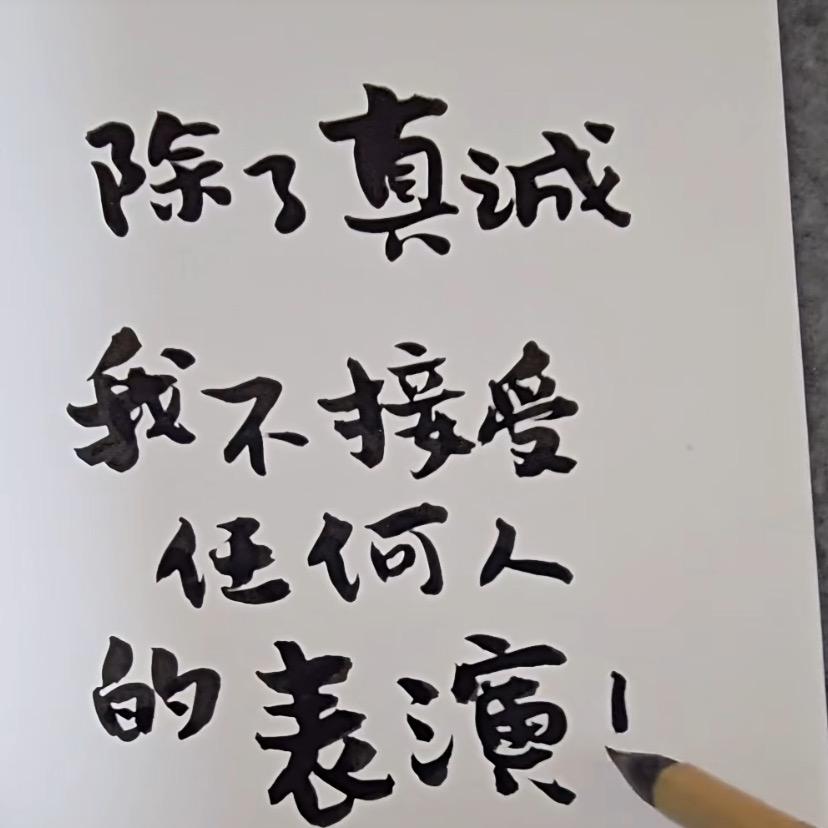 除了真诚
我不接受
任何人
的表演!